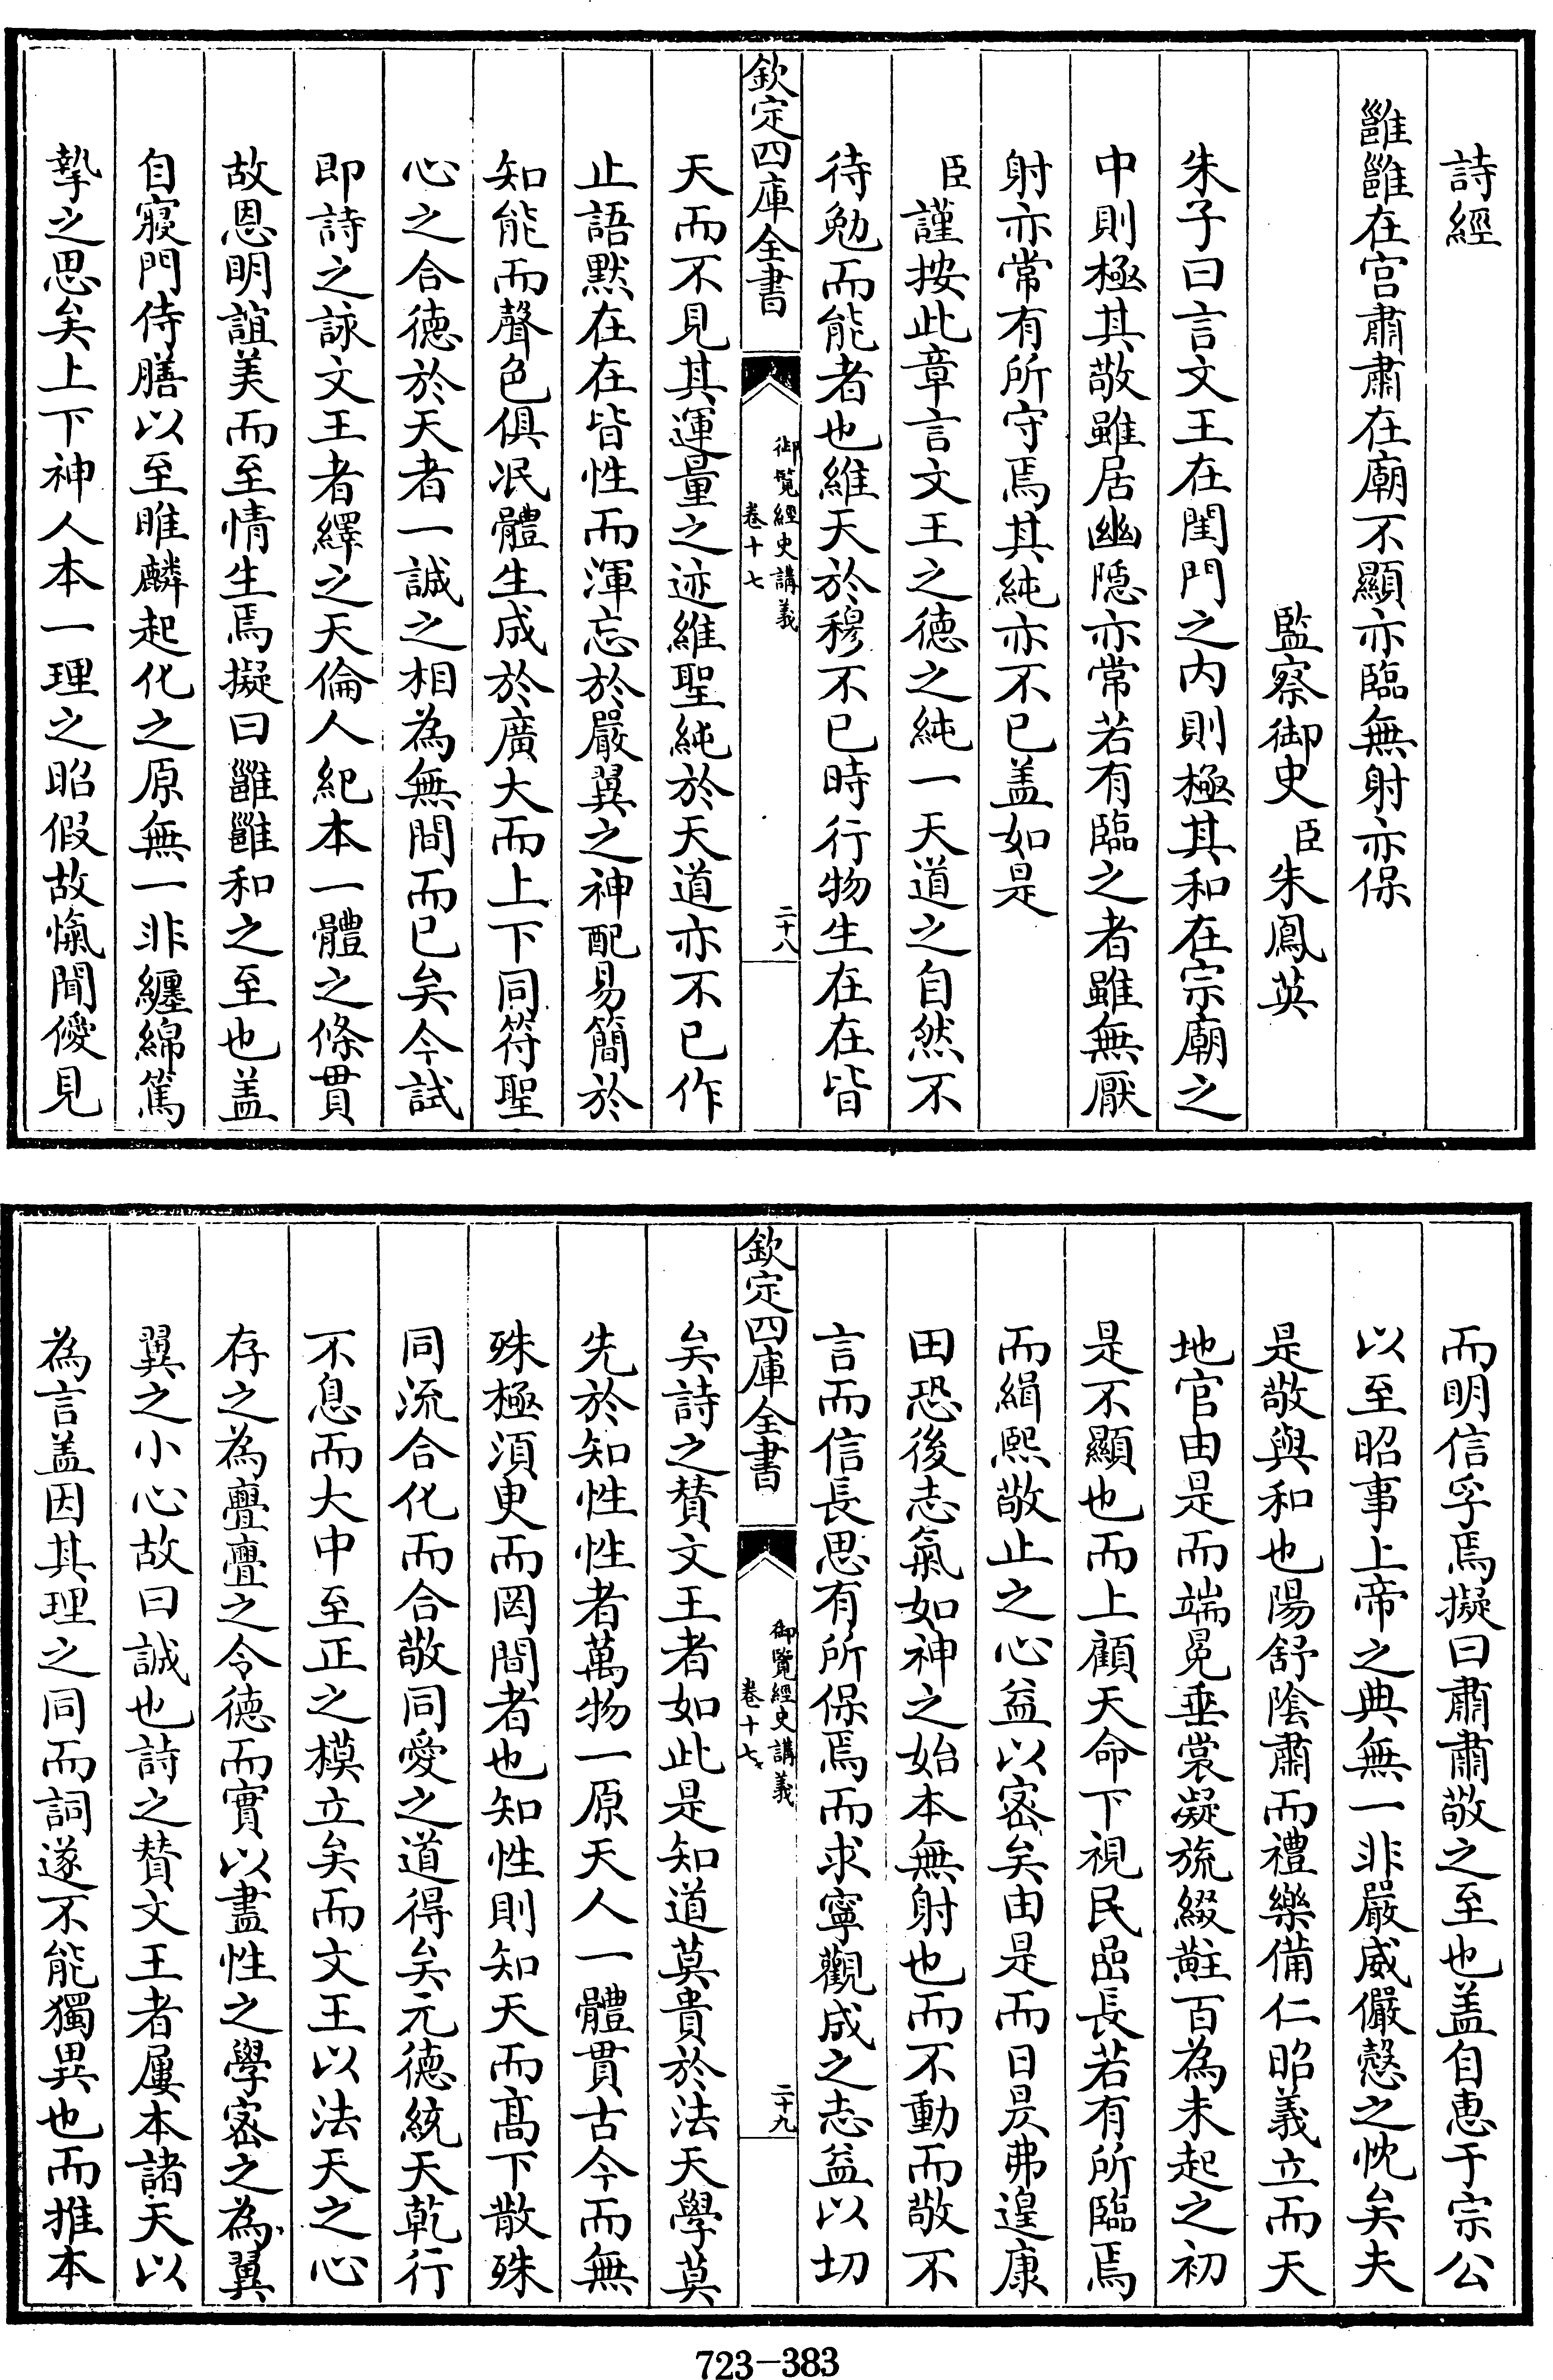 詩經
雝雝在宮肅肅在廟不顯亦臨無射亦保
監察御史臣朱鳳英
朱子曰言文王在閨門之内則極其和在宗廟之
中則極其敬雖居幽隱亦常若有臨之者雖無厭
射亦常有所守焉其純亦不已盖如是
臣謹按此章言文王之德之純一天道之自然不
待勉而能者也維天於穆不已時行物生在在皆
欽定四庫全書
御覽經史講義
卷十七
二十八
天而不見其運量之迹維聖純於天道亦不已作
止語默在在皆性而渾忘於嚴翼之神配易簡於
知能而聲色俱泯體生成於廣大而上下同符聖
心之合德於天者一誠之相為無間而已矣今試
即詩之詠文王者繹之天倫人紀本一體之條貫
故恩明誼美而至情生焉擬曰雝雝和之至也盖
自寢門侍膳以至雎麟起化之原無一非纏綿篤
摯之思矣上下神人本一理之昭假故愾聞僾見
而明信孚焉擬曰肅肅敬之至也盖自惠于宗公
以至昭事上帝之典無一非嚴威儼慤之忱矣夫
是敬與和也陽舒陰肅而禮樂備仁昭義立而天
地官由是而端冕垂裳凝旒綴黈百為未起之初
是不顯也而上顧天命下視民嵒長若有所臨焉
而緝熙敬止之心益以密矣由是而日昃弗遑康
田恐後志氣如神之始本無射也而不動而敬不
言而信長思有所保焉而求寧觀成之志益以切
欽定四庫全書
御覽經史講義
卷十七
二十九
矣詩之賛文王者如此是知道莫貴於法天學莫
先於知性性者萬物一原天人一體貫古今而無
殊極須臾而罔間者也知性則知天而髙下散殊
同流合化而合敬同愛之道得矣元德統天乾行
不息而大中至正之模立矣而文王以法天之心
存之為亹亹之令德而實以盡性之學密之為翼
翼之小心故曰誠也詩之賛文王者屢本諸天以
為言盖因其理之同而詞遂不能獨異也而推本
723-383